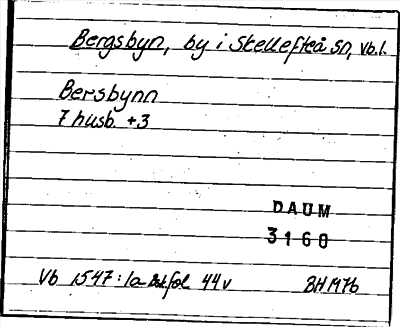 Bergsbyn, by i Skellefteå sn, Vb.l.
Bersbynn
7 husb. +3
DAUM
3160
Vb 1547:1a Bskfol 44v BH 1976